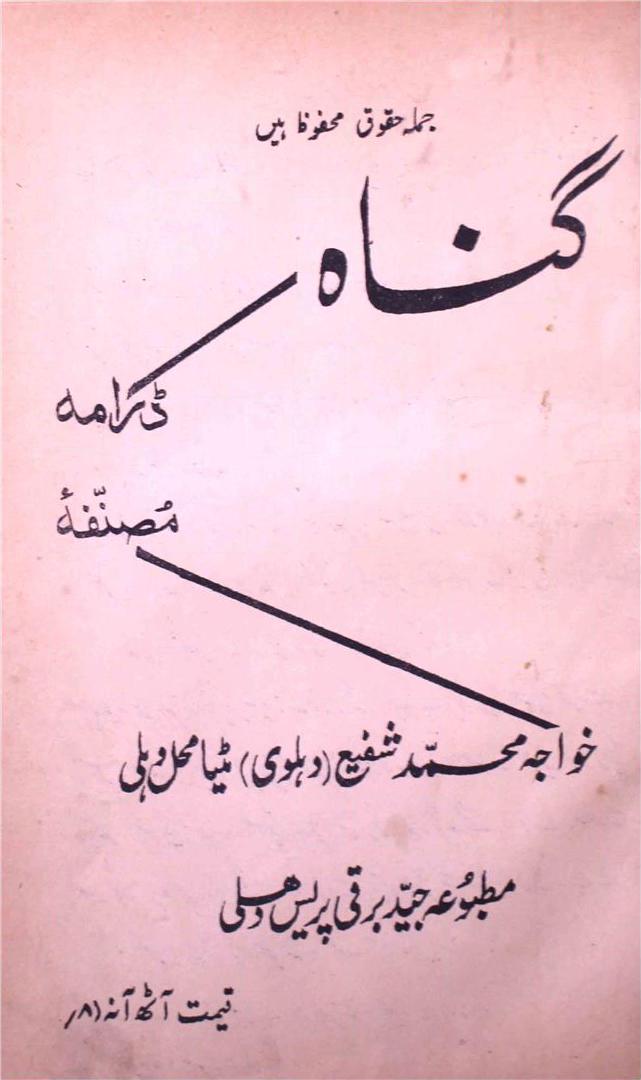 جملہ حقوق محفوظ ہیں
گناہ
ڈرامہ
مُصنّفۂ
خواجہ محمّد شفیع (دہلوی) مٹیا محل دہلی
مطبُوُعہ جیّد برقی پریس دھلی
قیمت آٹھ آنہ (۸؍